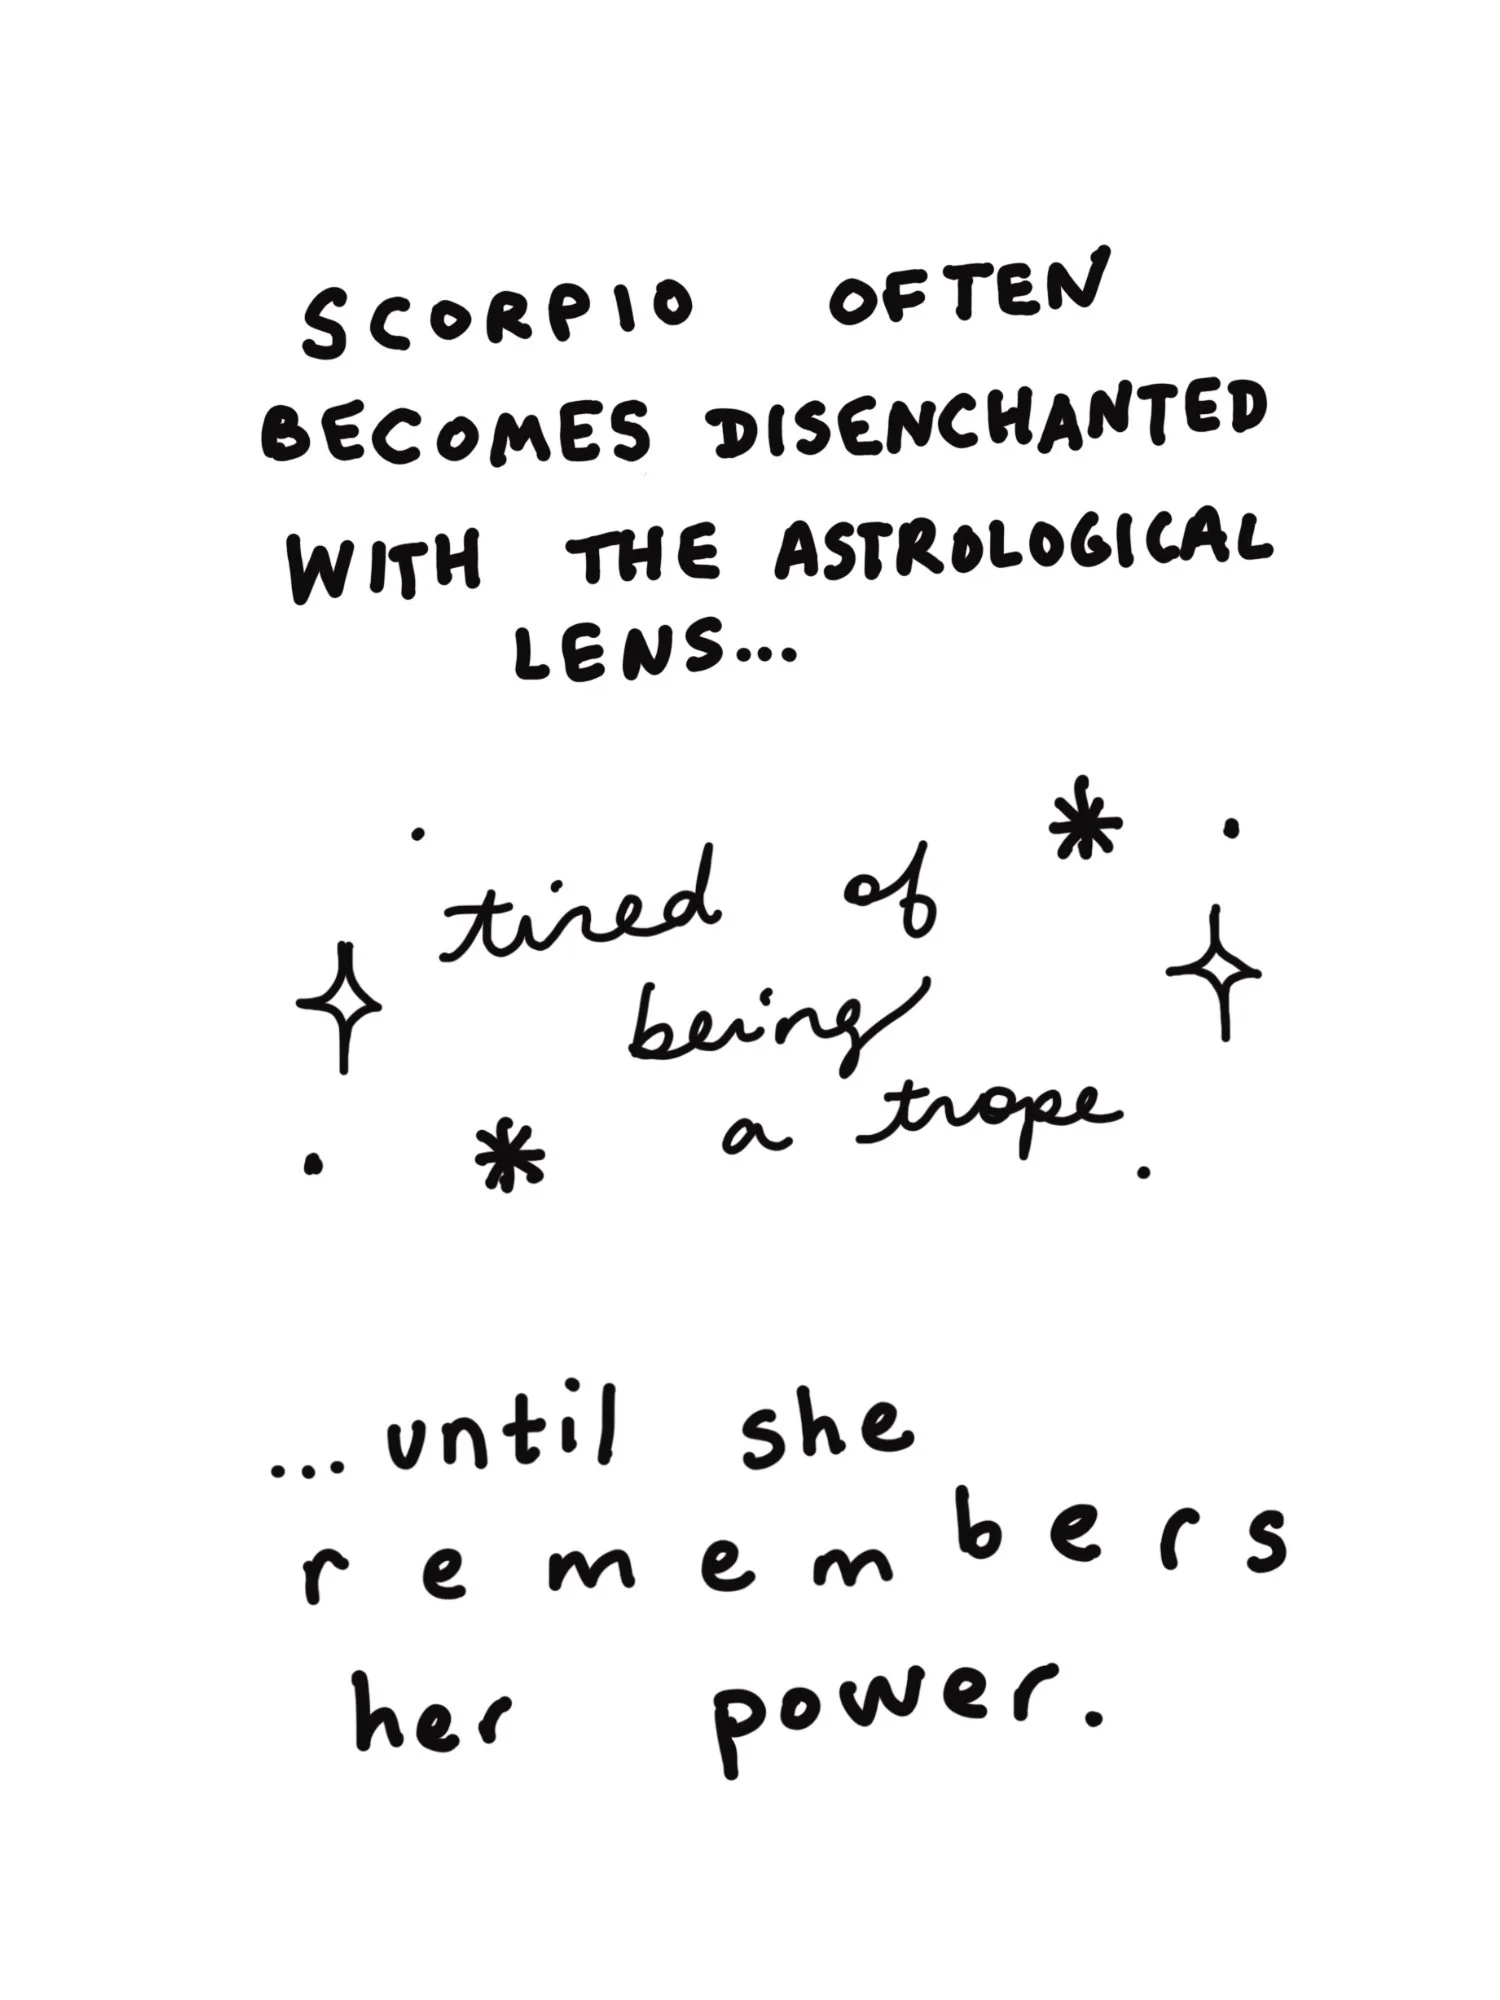 SCORPIO OFTEN
BECOMES DISENCHANTED
WITH THE ASTROLOGICAL
LENS...
tired of
being
a trope
...until she
remembers
her power.